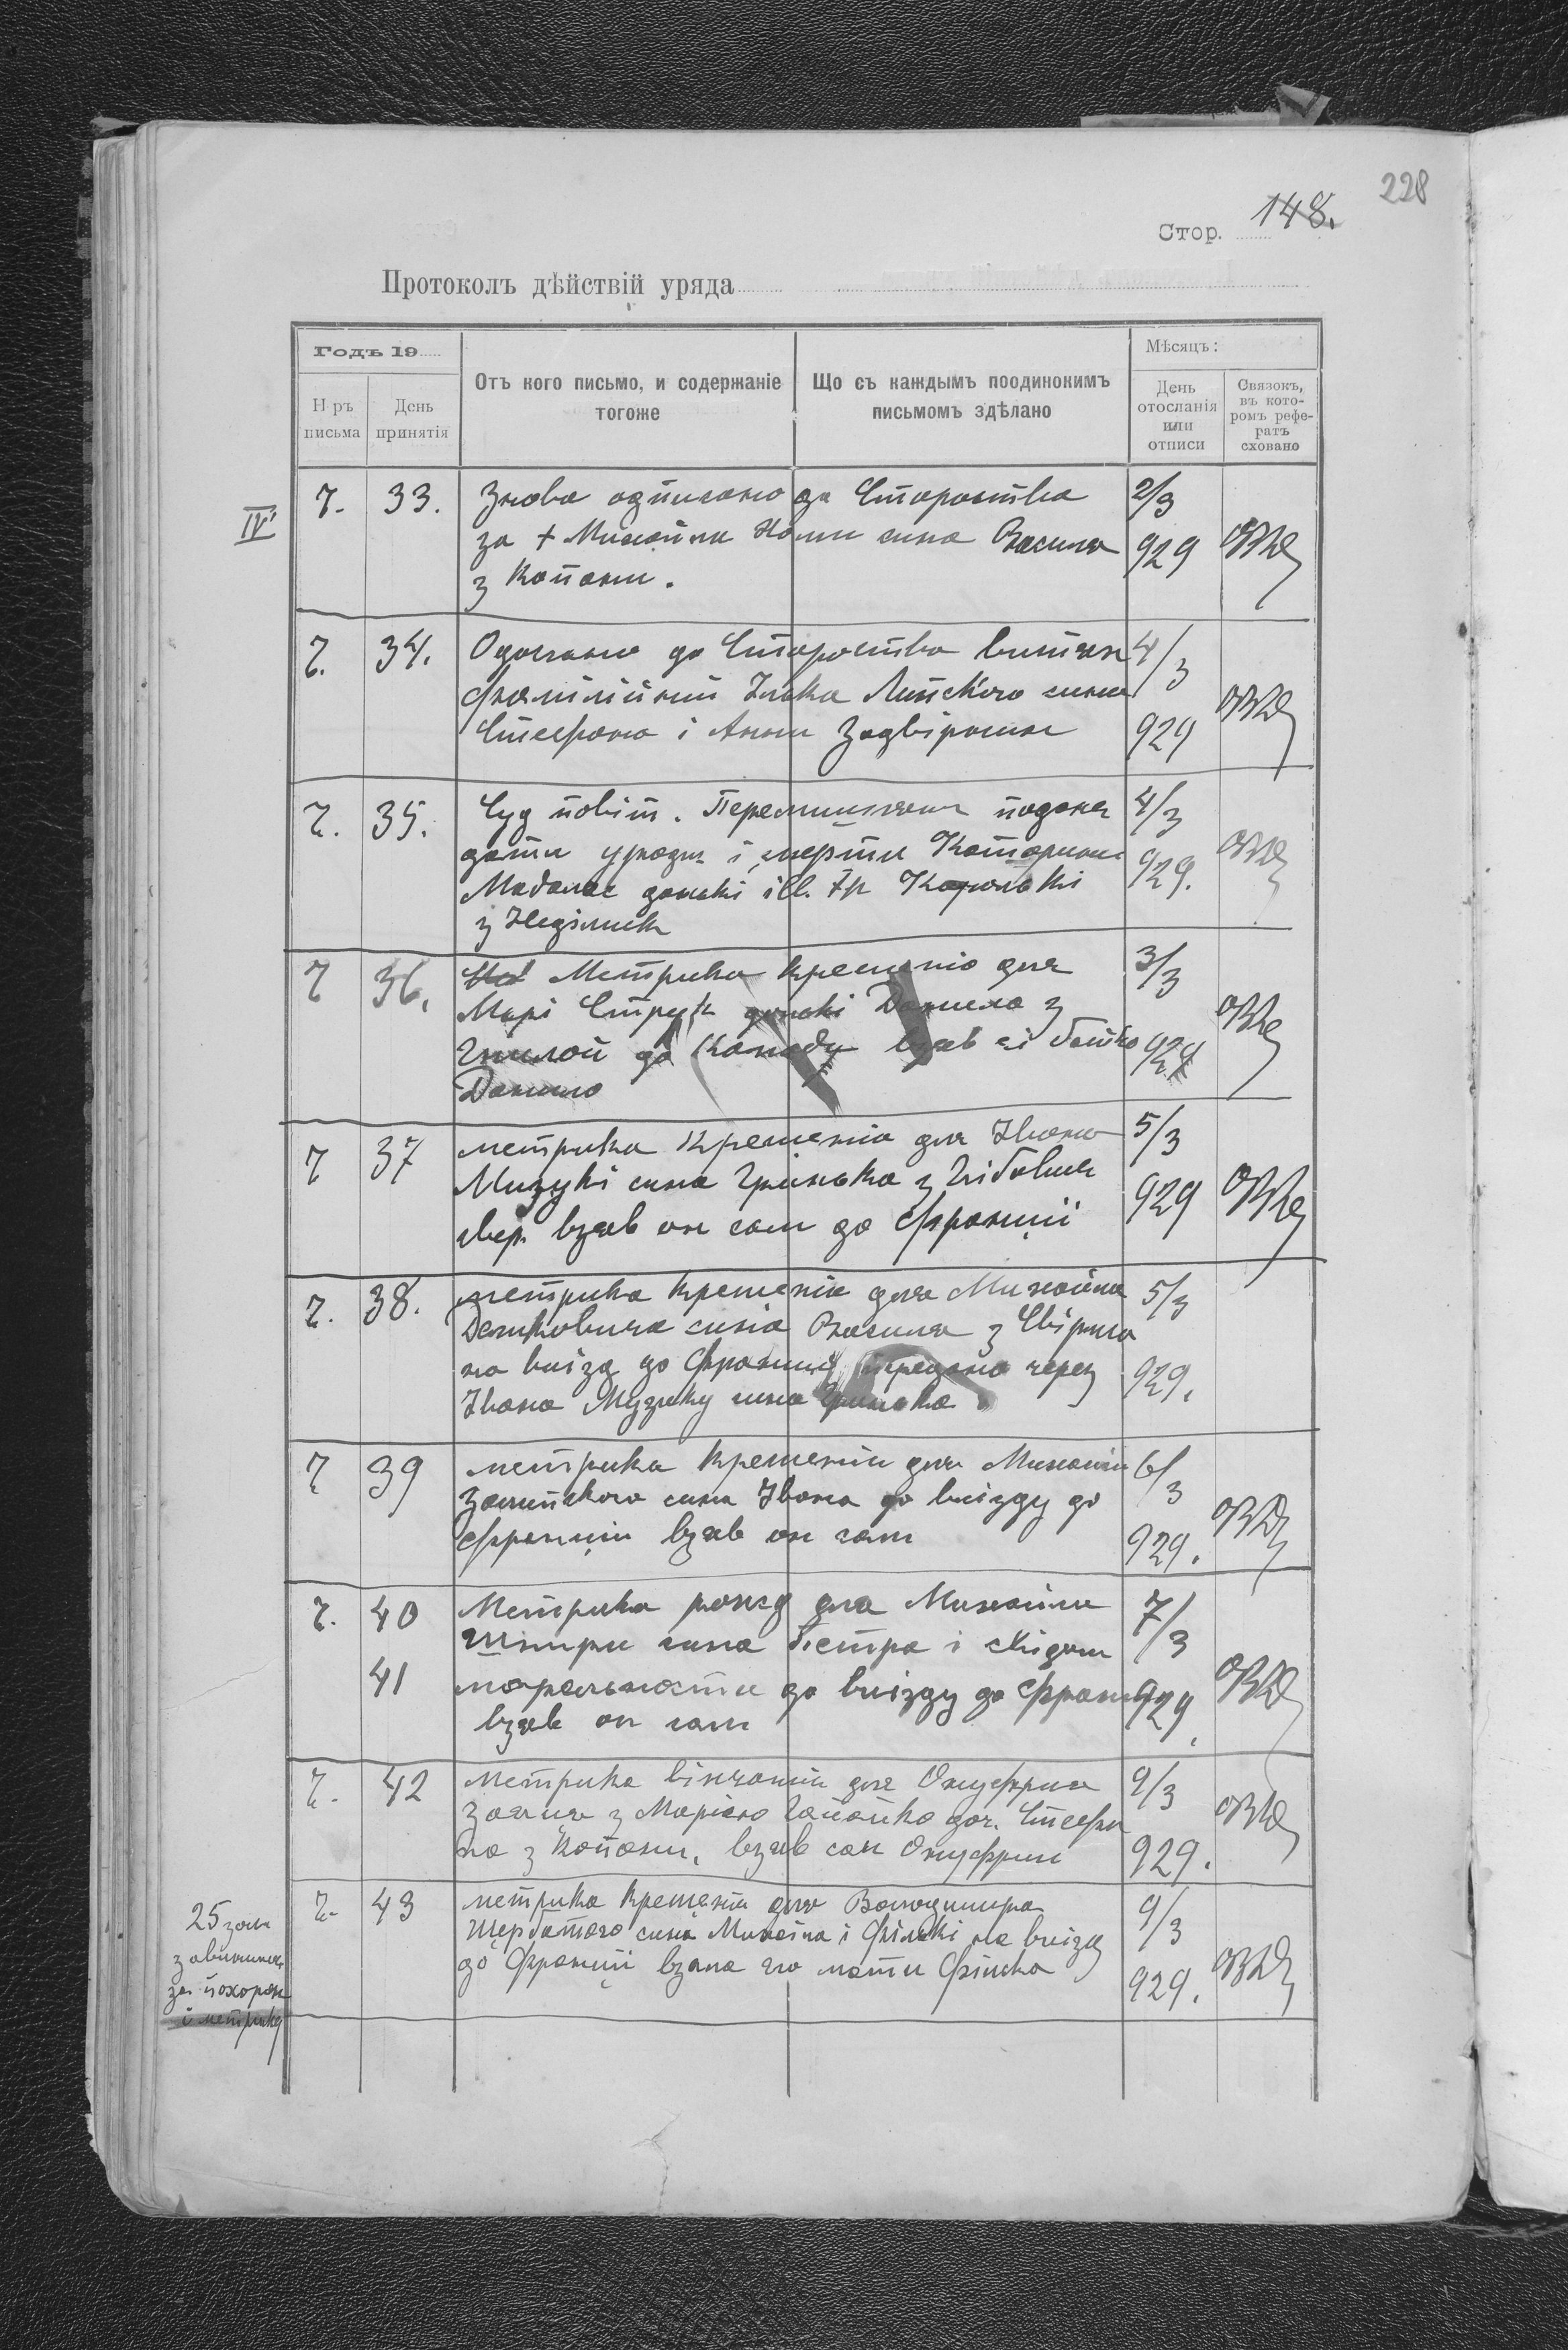 228
Стор. 148.
Протоколъ дѣйствій уряда
Годъ 19
Н-ръ письма
День принятія
Отъ кого письмо, и содержаніе тогоже
Що съ каждымъ поодинокимъ письмомъ здѣлано
Мѣсяцъ:
День отосланія или отписи
Связокъ, въ которомъ рефератъ сховано
IV
Ч. 33. Знова одписано до Староства 2/3
за + Михайла сина Василя 929
з Копани.
Ч. 34. Одослано до Староства витяг 4/3
фамілійний Ілька Липского сина
Стефана і Анни Задвірняк 929
Ч. 35. Суд повіт. Перемишляни подана 4/3
дата уродж і смерти Катарини 929.
доньки ill. гр
з Неділиск
Ч 36. Метрика крещенія для 3/3
Марі Струк доньки Данила з
Гнилой до Канади взяв єі батько 929
Данило
Ч 37 метрика крещенія для Івана 5/3
Музики сина Гринька з
взяв он сам до Франциї 929
Ч. 38. метрика крещенія для Михайла 5/3
Демковича сина Василя з Свіржа
на виїзд до Франциї передана через 929.
Івана Музику сина Гринька
Ч 39 метрика крещенія для Михаила 6/3
сина Івана до виїзду до
Франциї взяв он сам 929.
Ч. 40 Метрика рожд для Михаила 7/3
сина Петра і свідоц
41 моральности до виїзду до Франциї 929.
взяв он сам
Ч. 42 метрика вінчанія для Онуфрия 9/3
Заяця з Марією доч. Стефа
на з Копани, взяв сам Онуфрий 929.
Ч. 43 метрика крещенія для Володимира 9/3
Щербатого сина Михаіла і на виїзд
до Франциї взяла его мати 929.
25 зол
за похорон
і метрику